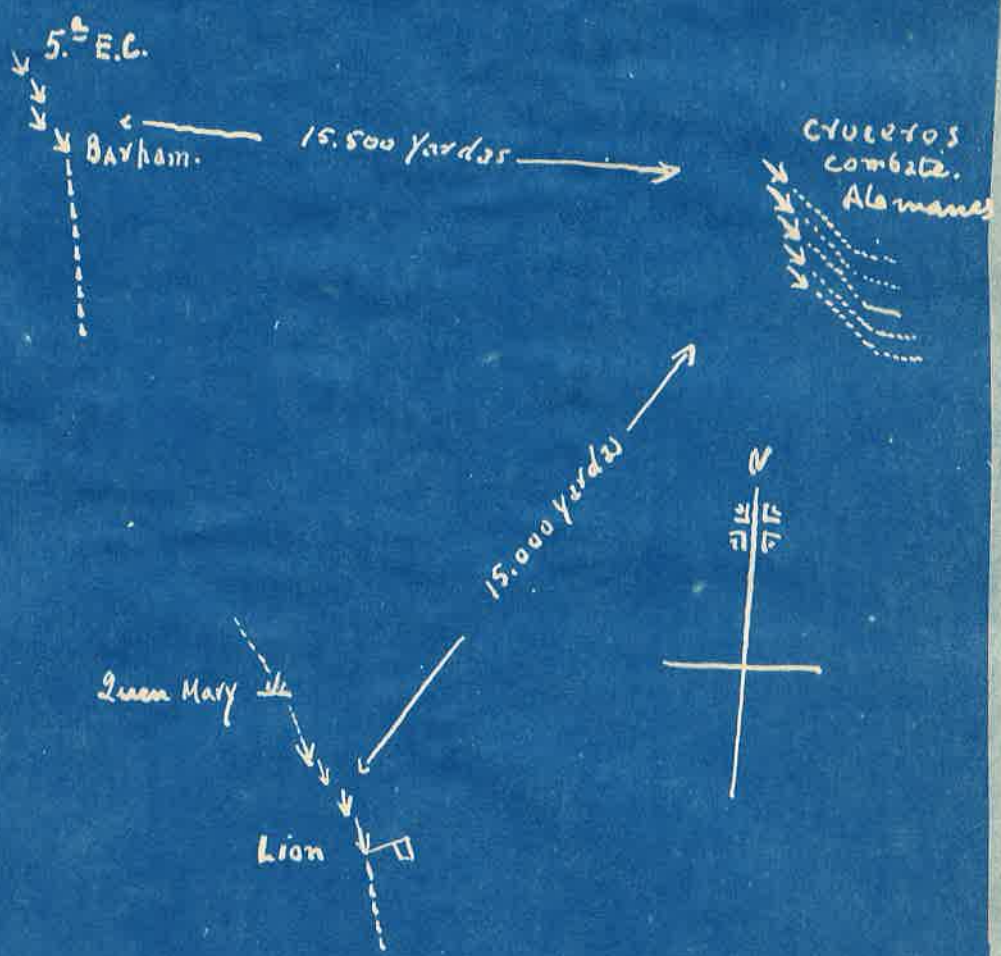 5.ª E.C.
Barham.
15.500 Yardas
Cruceros
combate.
Alemanes
15.000 yardas
N
Queen Mary
Lion